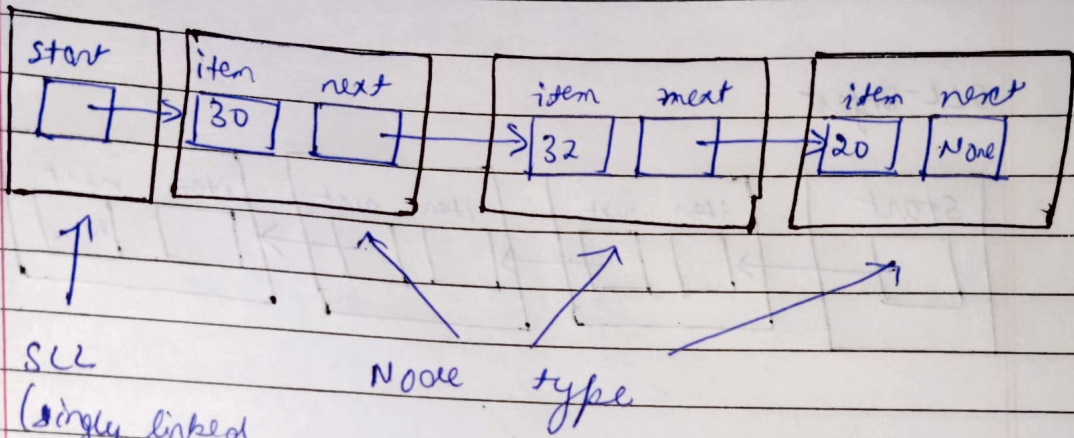 start
item next
30
item next
32
item next
20 None
SLL
(singly linked
Node type